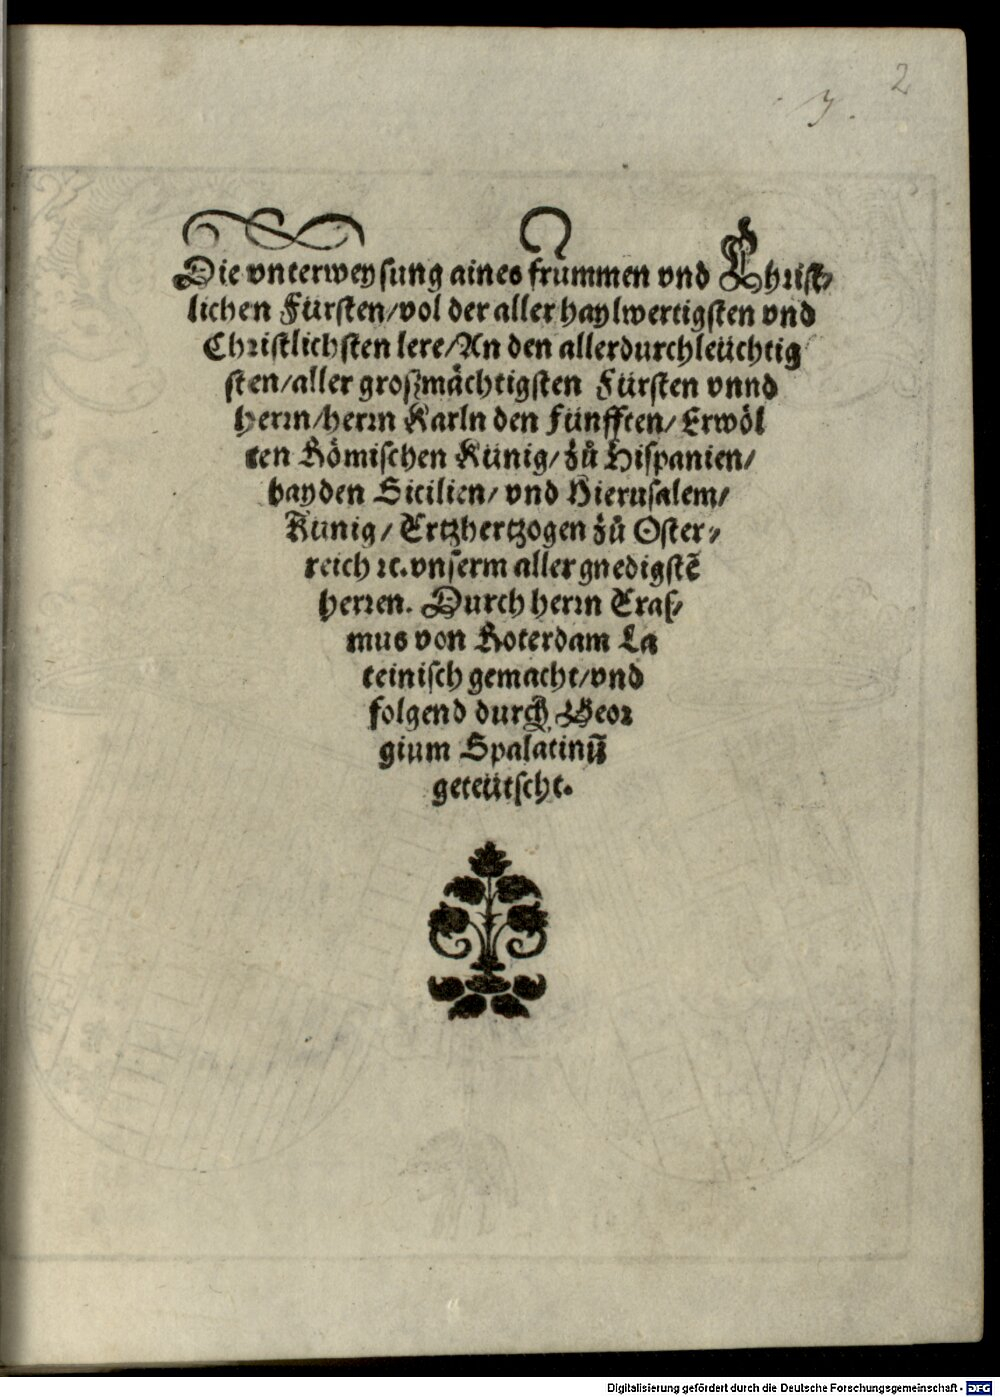 2
Die vnterweysung aines frummen vnd Christ⸗
lichen Fürsten/vol der aller haylwertigsten vnd
Christlichsten lere/An den allerdurchleüchtig
sten/aller großmächtigsten Fürsten vnnd
herrn/herrn Karln den fünfften/Erwöl
ten Römischen Künig/zů Hispanien/
bayden Sicilien/vnd Hierusalem/
Künig/Ertzhertzogen zů Oster⸗
reich ꝛc.vnserm aller gnedigstē
herren. Durch herrn Eras⸗
mus von Roterdam La
teinisch gemacht/vnd
folgend durch Geor
gium Spalatinū
geteütscht.
Digitalisierung gefördert durch die Deutsche Forschungsgemeinschaft - DFG